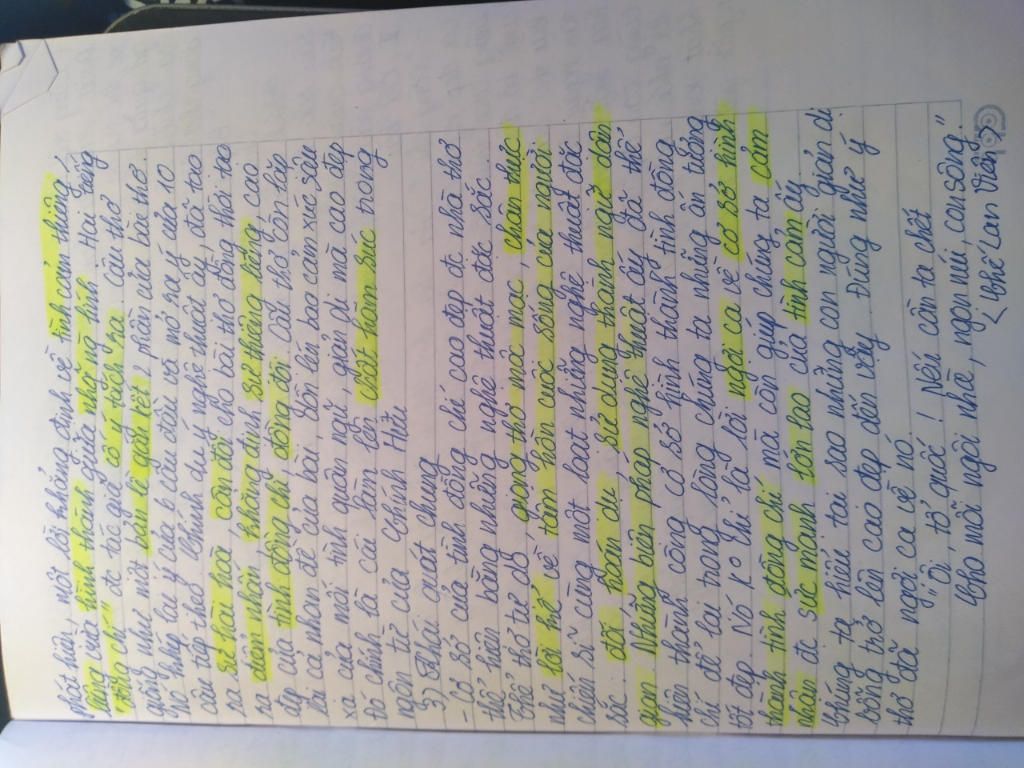 phát hiện, một lời khẳng định về tình cảm thiêng
liêng vừa hình thành giữa những người lính. Hai tiếng
"đồng chí" đc tác giả cố ý tách ra 1 câu thơ
giống như một bản lề gắn kết 2 phần của bài thơ.
Nó tổng lại ý của 6 câu đầu và mở ra ý của 10
câu tiếp theo. Chính dụng ý nghệ thuật ấy, đã tạo
ra sự hài hòa, cân đối cho bài thơ đồng thời tạo
ra điểm nhấn, khẳng định sự thiêng liêng, cao
đẹp của tình đồng chí đồng đội. Câu thơ còn lấy
lại cả nhan đề của bài, dồn lên bao cảm xúc sâu
xa của mối tình quần ngũ giản dị mà cao đẹp
đó chính là cái làm lên chất hàm súc trong
ngôn từ của Chính Hữu
3) Khái quát chung
- Cơ sở của tình đồng chí cao đẹp đc nhà thơ
thể hiện bằng những nghệ thuật đặc sắc.
Thể thơ tự do, giọng thơ mộc mạc, chân thực
như lời kể về tâm hồn cuộc sống của người
chiến sĩ cùng một loạt những nghệ thuật đặc
sắc: đối, hoán dụ, sử dụng thành ngữ dân
gian. Những biện pháp nghệ thuật ấy đã thể
hiện thành công cơ sở hình thành tình đồng
chí để lại trong lòng chúng ta những ấn tượng
tốt đẹp. Nó ko chỉ là lời ngợi ca về cơ sở hình
thành tình đồng chí mà còn giúp chúng ta cảm
nhận đc sức mạnh lớn lao của tình cảm ấy.
Chúng ta hiểu tại sao những con người giản dị
bỗng trở lên cao đẹp đến vậy. Đúng như ý
thơ đã ngợi ca về nó
"Ôi, tổ quốc! Nếu cần ta chết
Cho mỗi ngôi nhà, ngọn núi, con sông."
< Chế Lan Viên >